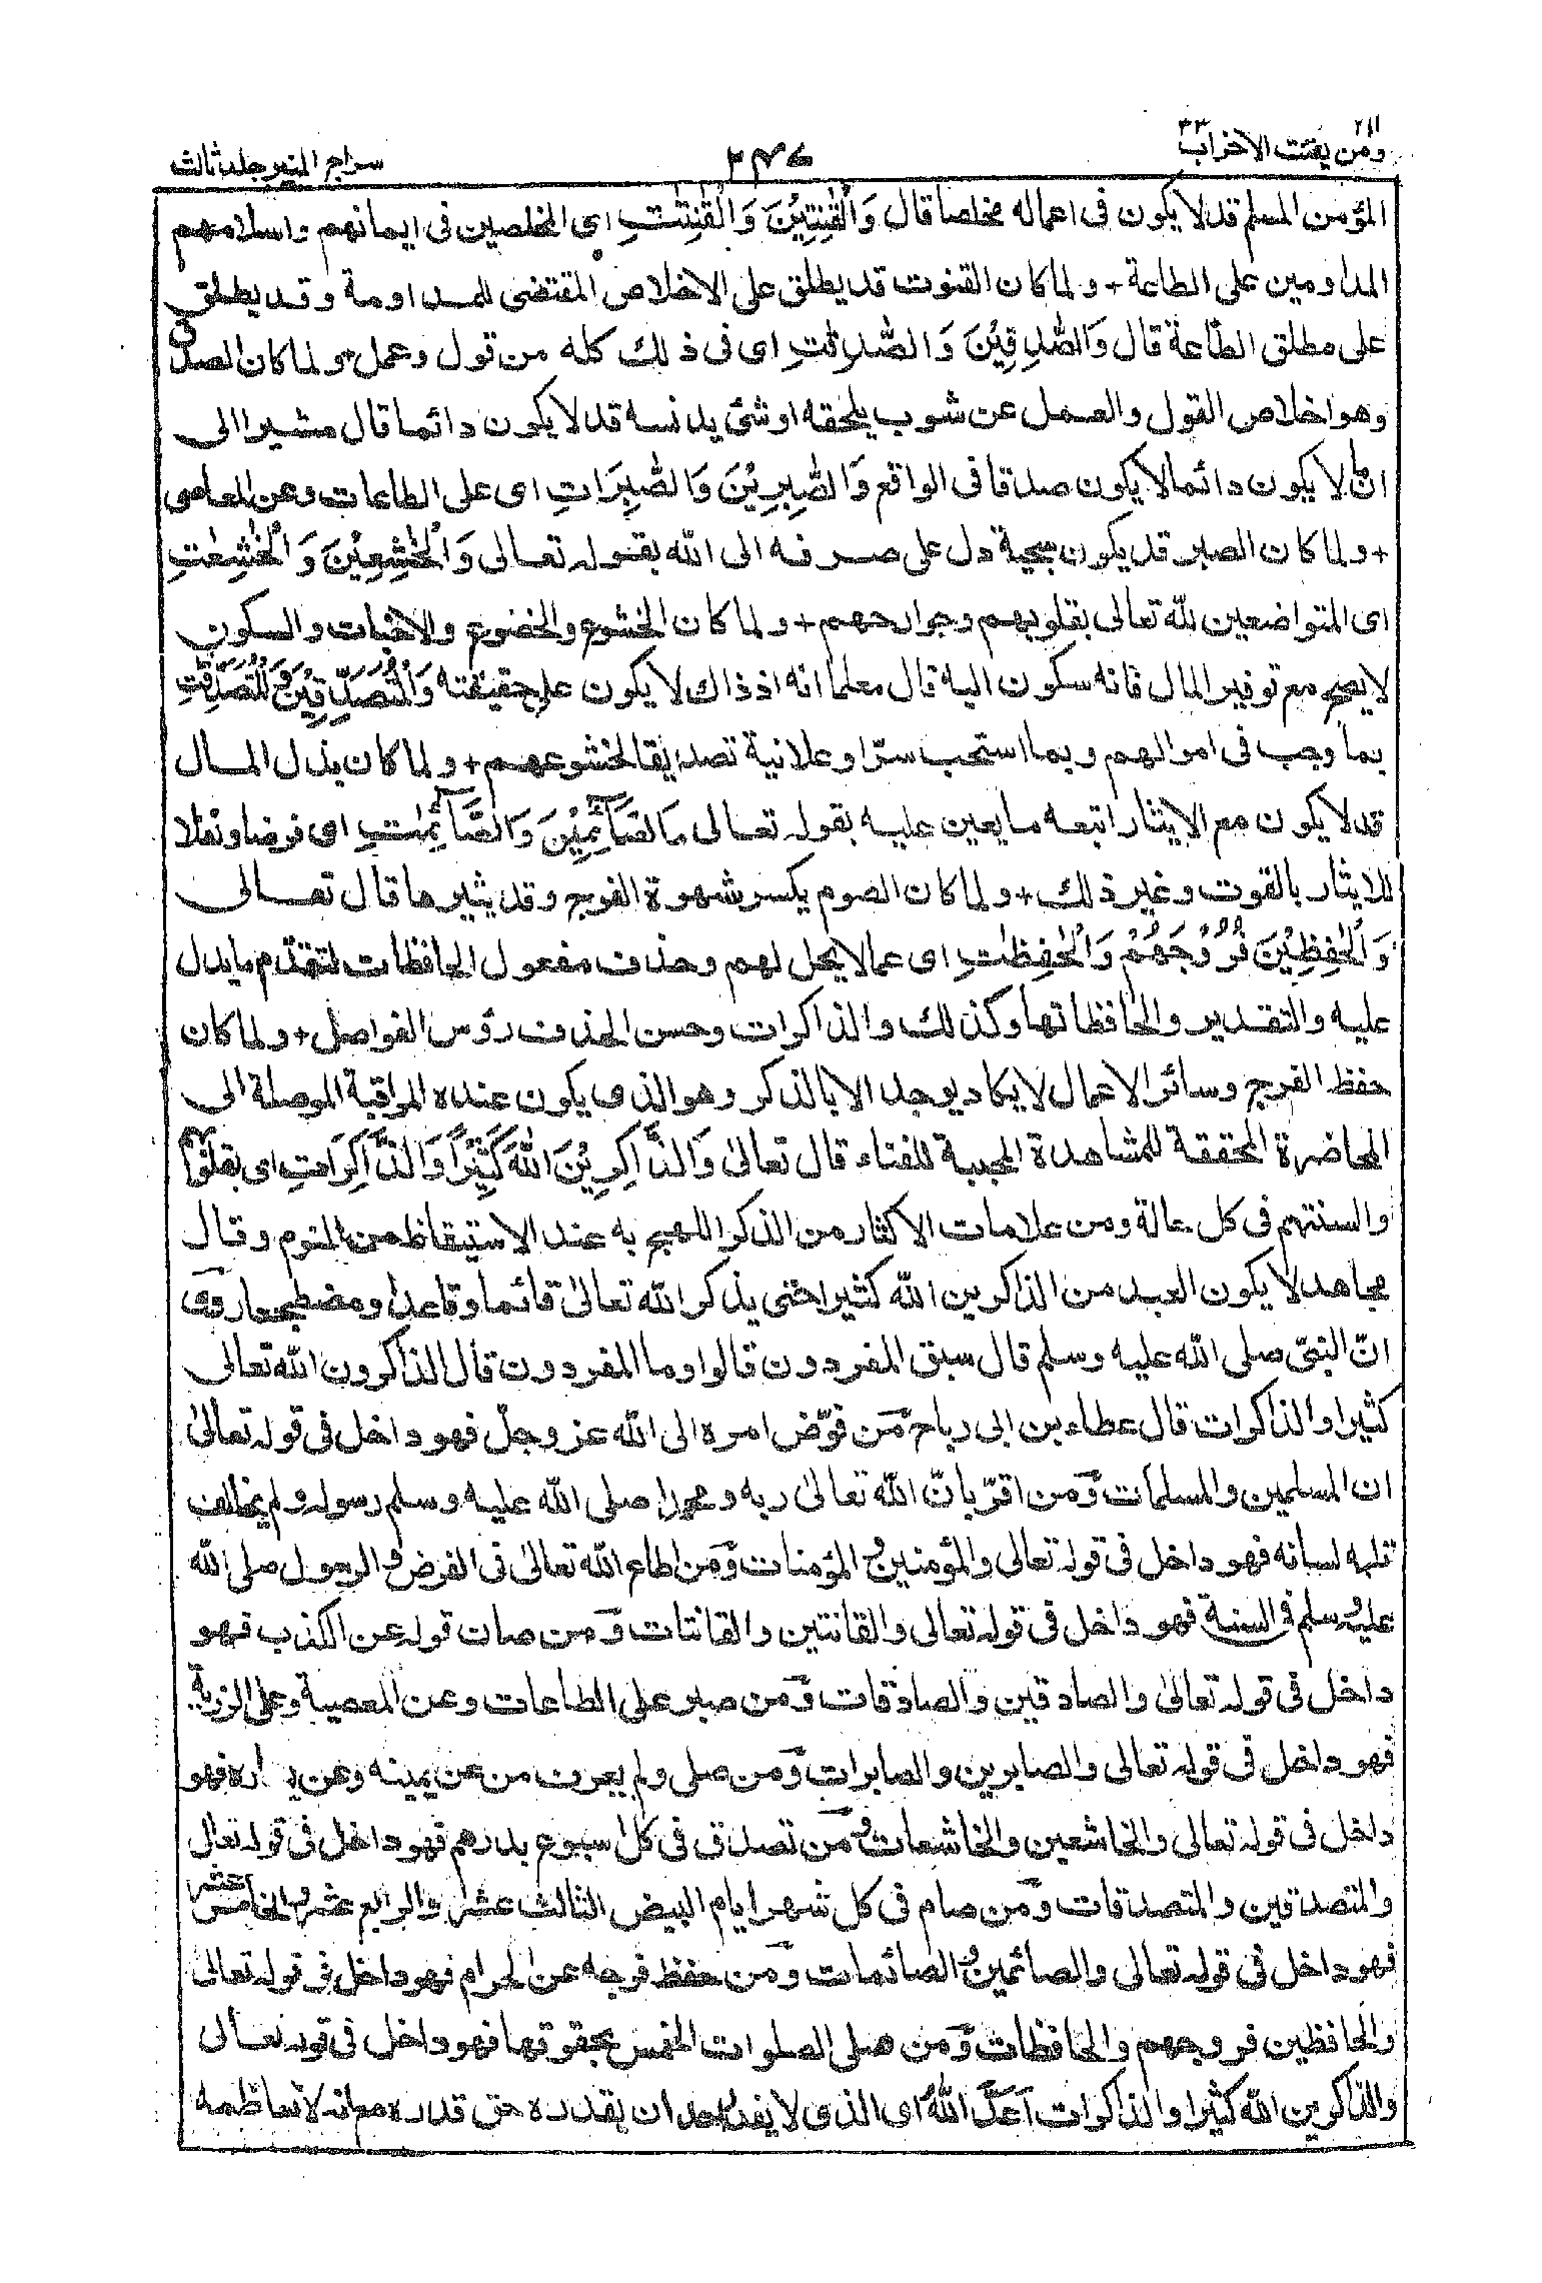 ومن يقنت ٢٢ الاحزاب ٣٣
٢٤٧
سراج المنير جلد ثالث
المؤمن المسلم قد لا يكون فى اعماله مخلصا قال وَالْقٰنِتِيْنَ وَالْقٰنِتٰتِ اى المخلصين فى ايمانهم واسلامهم
المداومين على الطاعة + ولما كان القنوت قد يطلق على الاخلاص المقتضى للمداومة وقد يطلق
على مطلق الطاعة قال وَالصّٰدِقِيْنَ وَالصّٰدِقٰتِ اى فى ذلك كله من قول وعمل + ولما كان الصدق
وهو اخلاص القول والعمل عن شوب يلحقه او شئ يدنسه قد لا يكون دائما قال مشيرا الى
ان ما لا يكون دائما لا يكون صدقا فى الواقع وَالصّٰبِرِيْنَ وَالصّٰبِرَاتِ اى على الطاعات وعن المعاصى
+ ولما كان الصبر قد يكون سجية دل على صرفه الى الله بقوله تعالى وَالْخٰشِعِيْنَ وَالْخٰشِعٰتِ
اى المتواضعين لله تعالى بقلوبهم وجوارحهم + ولما كان الخشوع والخضوع والاخبات والسكون
لا يصح مع توفير المال فانه سكون اليه قال معلما انه اذ ذاك لا يكون على حقيقته وَالْمُتَصَدِّقِيْنَ وَالْمُتَصَدِّقٰتِ
بما وجب فى اموالهم وبما استحب سرّا وعلانية تصديقا لخشوعهم + ولما كان بذل المال
قد لا يكون مع الايثار اتبعه ما يعين عليه بقوله تعالى وَالصَّآئِمِيْنَ وَالصَّآئِمٰتِ اى فرضا ونفلا
للايثار بالقوت وغير ذلك + ولما كان الصوم يكسر شهوة الفرج وقد يثيرها قال تعالى
وَالْحٰفِظِيْنَ فُرُوْجَهُمْ وَالْحٰفِظٰتِ اى عما لا يحل لهم وحذف مفعول الحافظات لتقدم ما يدل
عليه والتقدير والحافظاتها وكذلك والذاكرات وحسن الحذف رؤس الفواصل + ولما كان
حفظ الفرج وسائر الاعمال لا يكاد يوجد الا بالذكر وهو الذى يكون عنده المراقبة الموصلة الى
المحاضرة المحققة للمشاهدة المجيبة للفناء قال تعالى وَالذَّاكِرِيْنَ اللّٰهَ كَثِيْرًا وَالذَّاكِرَاتِ اى بقلوبهم
والسنتهم فى كل حالة ومن علامات الاكثار من الذكر اللهج به عند الاستيقاظ من النوم وقال
مجاهد لا يكون العبد من الذاكرين الله كثيرا حتى يذكر الله تعالى قائما وقاعدا ومضطجعا روى
انّ النبىّ صلى الله عليه وسلم قال سبق المفردون قالوا وما المفردون قال الذاكرون الله تعالى
كثيرا والذاكرات قال عطاء بن ابى رباح من فوّض امره الى الله عز وجلّ فهو داخل فى قوله تعالى
ان المسلمين والمسلمات ومن اقرّ بانّ الله تعالى ربه ومحمدا صلى الله عليه وسلم رسوله ولم يخالف
قلبه لسانه فهو داخل فى قوله تعالى والمؤمنين والمؤمنات ومن اطاع الله تعالى فى الفرض والرسول صلى الله
عليه وسلم فى السنة فهو داخل فى قوله تعالى والقانتين والقانتات ومن صان قوله عن الكذب فهو
داخل فى قوله تعالى والصادقين والصادقات ومن صبر على الطاعات وعن المعصية وعلى الرزية
فهو داخل فى قوله تعالى والصابرين والصابرات ومن صلى ولم يعرف من عن يمينه وعن يساره فهو
داخل فى قوله تعالى والخاشعين والخاشعات ومن تصدق فى كل اسبوع بدرهم فهو داخل فى قوله تعالى
والمتصدقين والمتصدقات ومن صام فى كل شهر ايام البيض الثالث عشر والرابع عشر والخامس عشر
فهو داخل فى قوله تعالى والصائمين والصائمات ومن حفظ فرجه عن الحرام فهو داخل فى قوله تعالى
والحافظين فروجهم والحافظات ومن صلى الصلوات الخمس بحقوقها فهو داخل فى قوله تعالى
والذاكرين الله كثيرا والذاكرات اَعَدَّ اللّٰهُ اى الذى لا يقدر احد ان يقدره حق قدره مع انه لا يتعاظمه